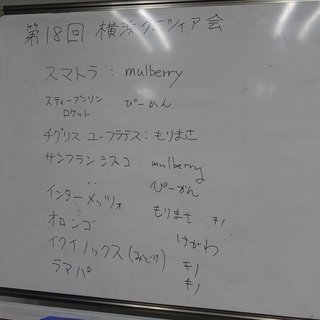 第18回 横浜クニツィア会
スマトラ : mulberry
スティーブンソン
ロケット : ぴーかん
チグリス ユーフラテス : もりまさ
サンフランシスコ mulberry
〃 ぴーかん
インターメッツォ もりまさ・キノ
オロンゴ けがわ
イクイノックス (みどり) キノ
ラマパ キノ